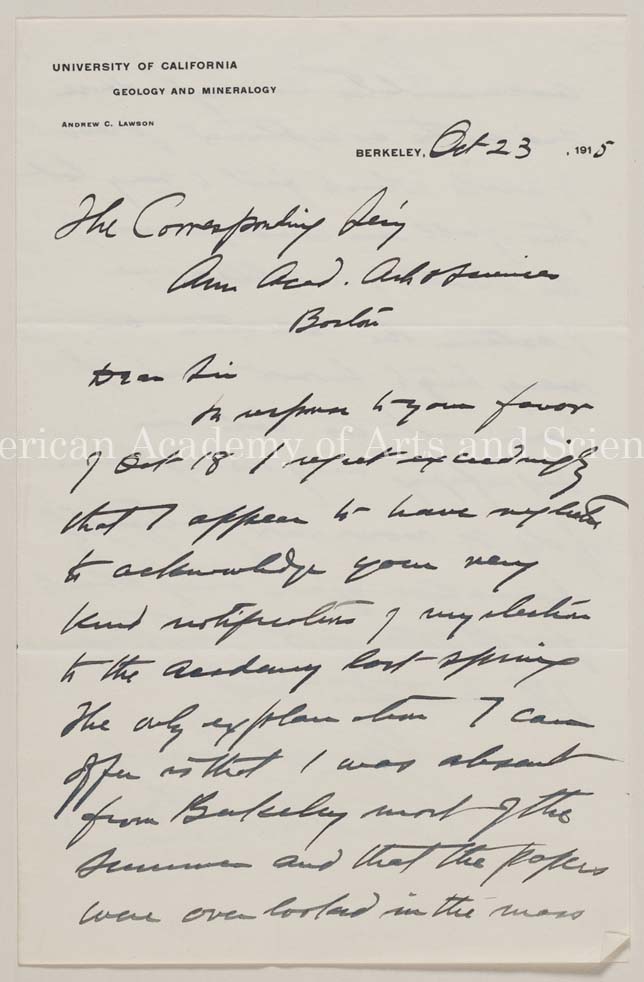 UNIVERSITY OF CALIFORNIA
GEOLOGY AND MINERALOGY
ANDREW C. LAWSON
BERKELEY, Oct 23, 1915
The Corresponding Sec'y
Am Acad. Arts & Sciences
Boston
Dear Sir
In response to your favor
merican Academy of Arts and Scien
of Oct 18 I regret exceedingly
that I appear to have neglected
to acknowledge your very
kind notification of my election
to the Academy last spring
The only explanation I can
offer is that I was absent
from Berkeley most of the
summer and that the papers
were overlooked in the mass